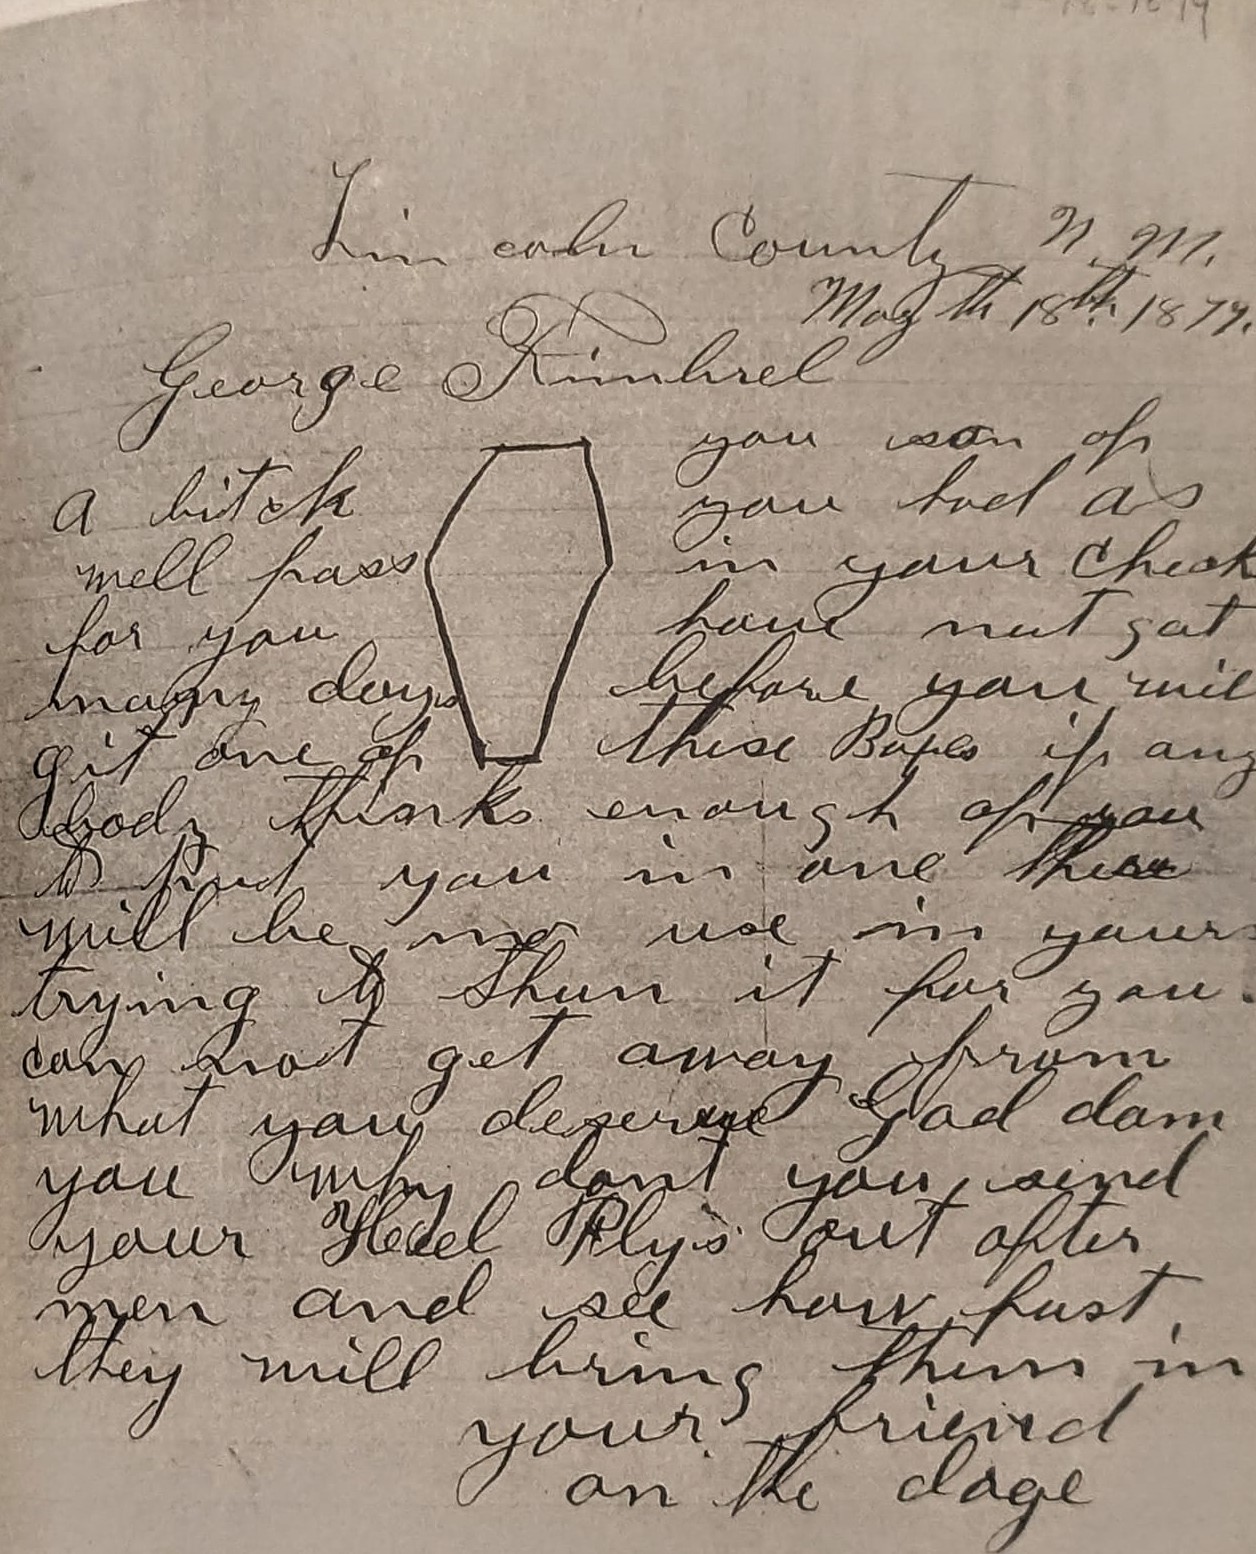 Lincoln County N. M.
May th 18th. 1879.
George Kimbrel
you son of
a bitch you had as
well pass in your Check
for you have not got
many days before you will
git one of these Boxes if any
body thinks enough of you
to put you in one there
will be no use in your
trying to shun it for you
can not get away from
what you deserve God dam
you why dont you send
your Heel Fly's out after
men and see how fast
they will bring them in
your friend
on the doge